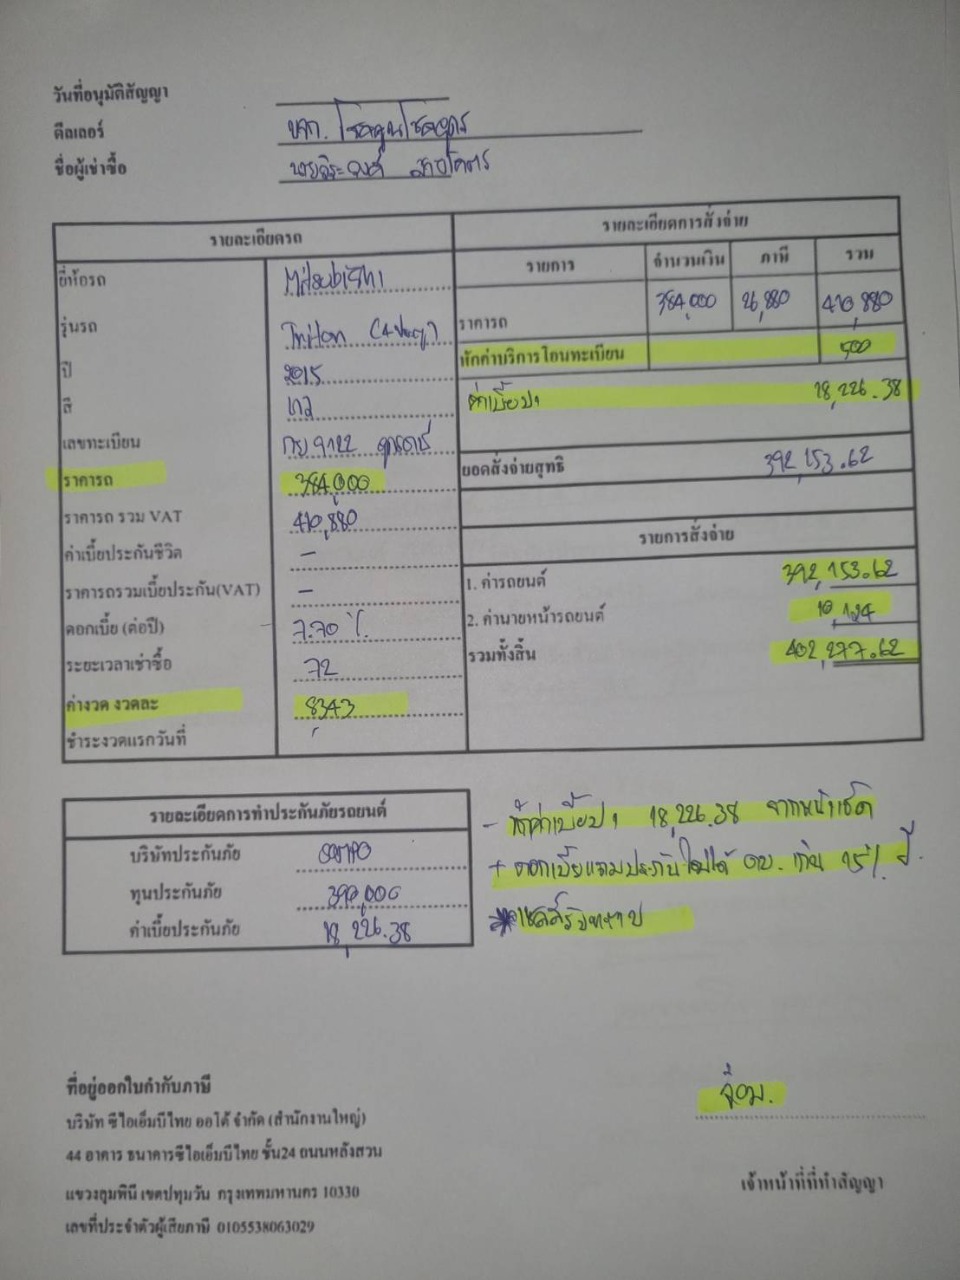 วันที่อนุมัติสัญญา
ดีลเลอร์ หจก. โชคคูณโชคอุดร
ชื่อผู้เช่าซื้อ
รายละเอียดรถ
ยี่ห้อรถ Mitsubishi
รุ่นรถ Triton (4ประตู)
ปี 2015
สี เทา
เลขทะเบียน
ราคารถ 384,000
ราคารถ รวม VAT 410,880
ค่าเบี้ยประกันชีวิต -
ราคารถรวมเบี้ยประกัน(VAT) -
ดอกเบี้ย (ต่อปี) 7.70 %
ระยะเวลาเช่าซื้อ 72
ค่างวด งวดละ 8,343
ชำระงวดแรกวันที่
รายละเอียดการสั่งจ่าย
รายการ จำนวนเงิน ภาษี รวม
ราคารถ 384,000 26,880 410,880
หักค่าบริการโอนทะเบียน 500
ค่าเบี้ยป1 18,226.38
ยอดสั่งจ่ายสุทธิ 392,153.62
รายการสั่งจ่าย
1. ค่ารถยนต์ 392,153.62
2. ค่านายหน้ารถยนต์ 10,124
รวมทั้งสิ้น 402,277.62
รายละเอียดการทำประกันภัยรถยนต์
บริษัทประกันภัย
ทุนประกันภัย 390,000
ค่าเบี้ยประกันภัย 18,226.38
- หักค่าเบี้ยป1 18,226.38 จากหน้าเช็ค
+ ดอกเบี้ยรวมประกันไม่ได้ ดบ. เกิน 15% ปี
ที่อยู่ออกใบกำกับภาษี
บริษัท ซีไอเอ็มบีไทย ออโต้ จำกัด (สำนักงานใหญ่)
44 อาคาร ธนาคารซีไอเอ็มบีไทย ชั้น24 ถนนหลังสวน
แขวงลุมพินี เขตปทุมวัน กรุงเทพมหานคร 10330
เลขที่ประจำตัวผู้เสียภาษี 0105538063029
เจ้าหน้าที่ที่ทำสัญญา